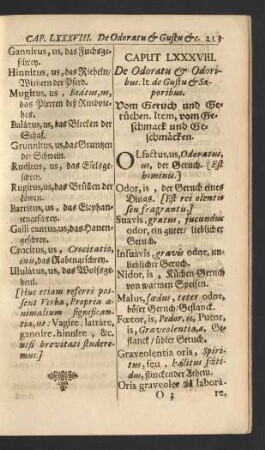 CAP. LXXXVIII. De Odoratu & Gustu &c. 213
Gannitus, us, das Fuchsge-
schrey.
Hinnitus, us, das Rieheln/
Wiehern der Pferd.
Mugitus, us, Boatus, us,
das Plerren des Rindvie-
hes.
Balatus, us, das Blecken der
Schaf.
Grunnitus, us, das Gruntzen
der Schwein.
Ruditus, us, das Eselsge-
schrey.
Rugitus, us, das Brüllen der
Löwen.
Barritus, us, das Elephan-
tengeschrey.
Galli cantus, us, das Hanen-
geschrey.
Crocitus, us, Crocitatio,
onis, das Rabengeschrey.
Ululatus, us, das Wolffsge-
heul.
[Huc etiam referri pos-
sent Verba, Propria a-
nimalium significan-
tia, ut: Vagire, latrare,
gannire, hinnire, &c.
nisi brevitati studere-
mus.]
CAPUT LXXXVIII.
De Odoratu & Odori-
bus. It. de Gustu & Sa-
poribus.
Vom Geruch und Ge-
rüchen. Item, vom Ge-
schmack und Ge-
schmäcken.
Olfactus, us, Odoratus,
us, der Geruch. [Est
hominis.]
Odor, is, der Geruch eines
Dings. [Est rei olentis
seu fragrantis.]
Suavis, gratus, jucundus
odor, ein guter/ lieblicher
Geruch.
Insuavis, gravis odor, un-
lieblicher Geruch.
Nidor, is, Küchen Geruch
von warmen Speisen.
Malus, fœdus, teter odor,
böser Geruch/ Gestanck.
Fœtor, is, Pedor, is, Putor,
is, Graveolentia, æ, Ge-
stanck/ übler Geruch.
Graveolentia oris, Spiri-
tus, seu, halitus fœti-
dus, stinckender Athem.
Oris graveolentiâ labora-
O 3 re,